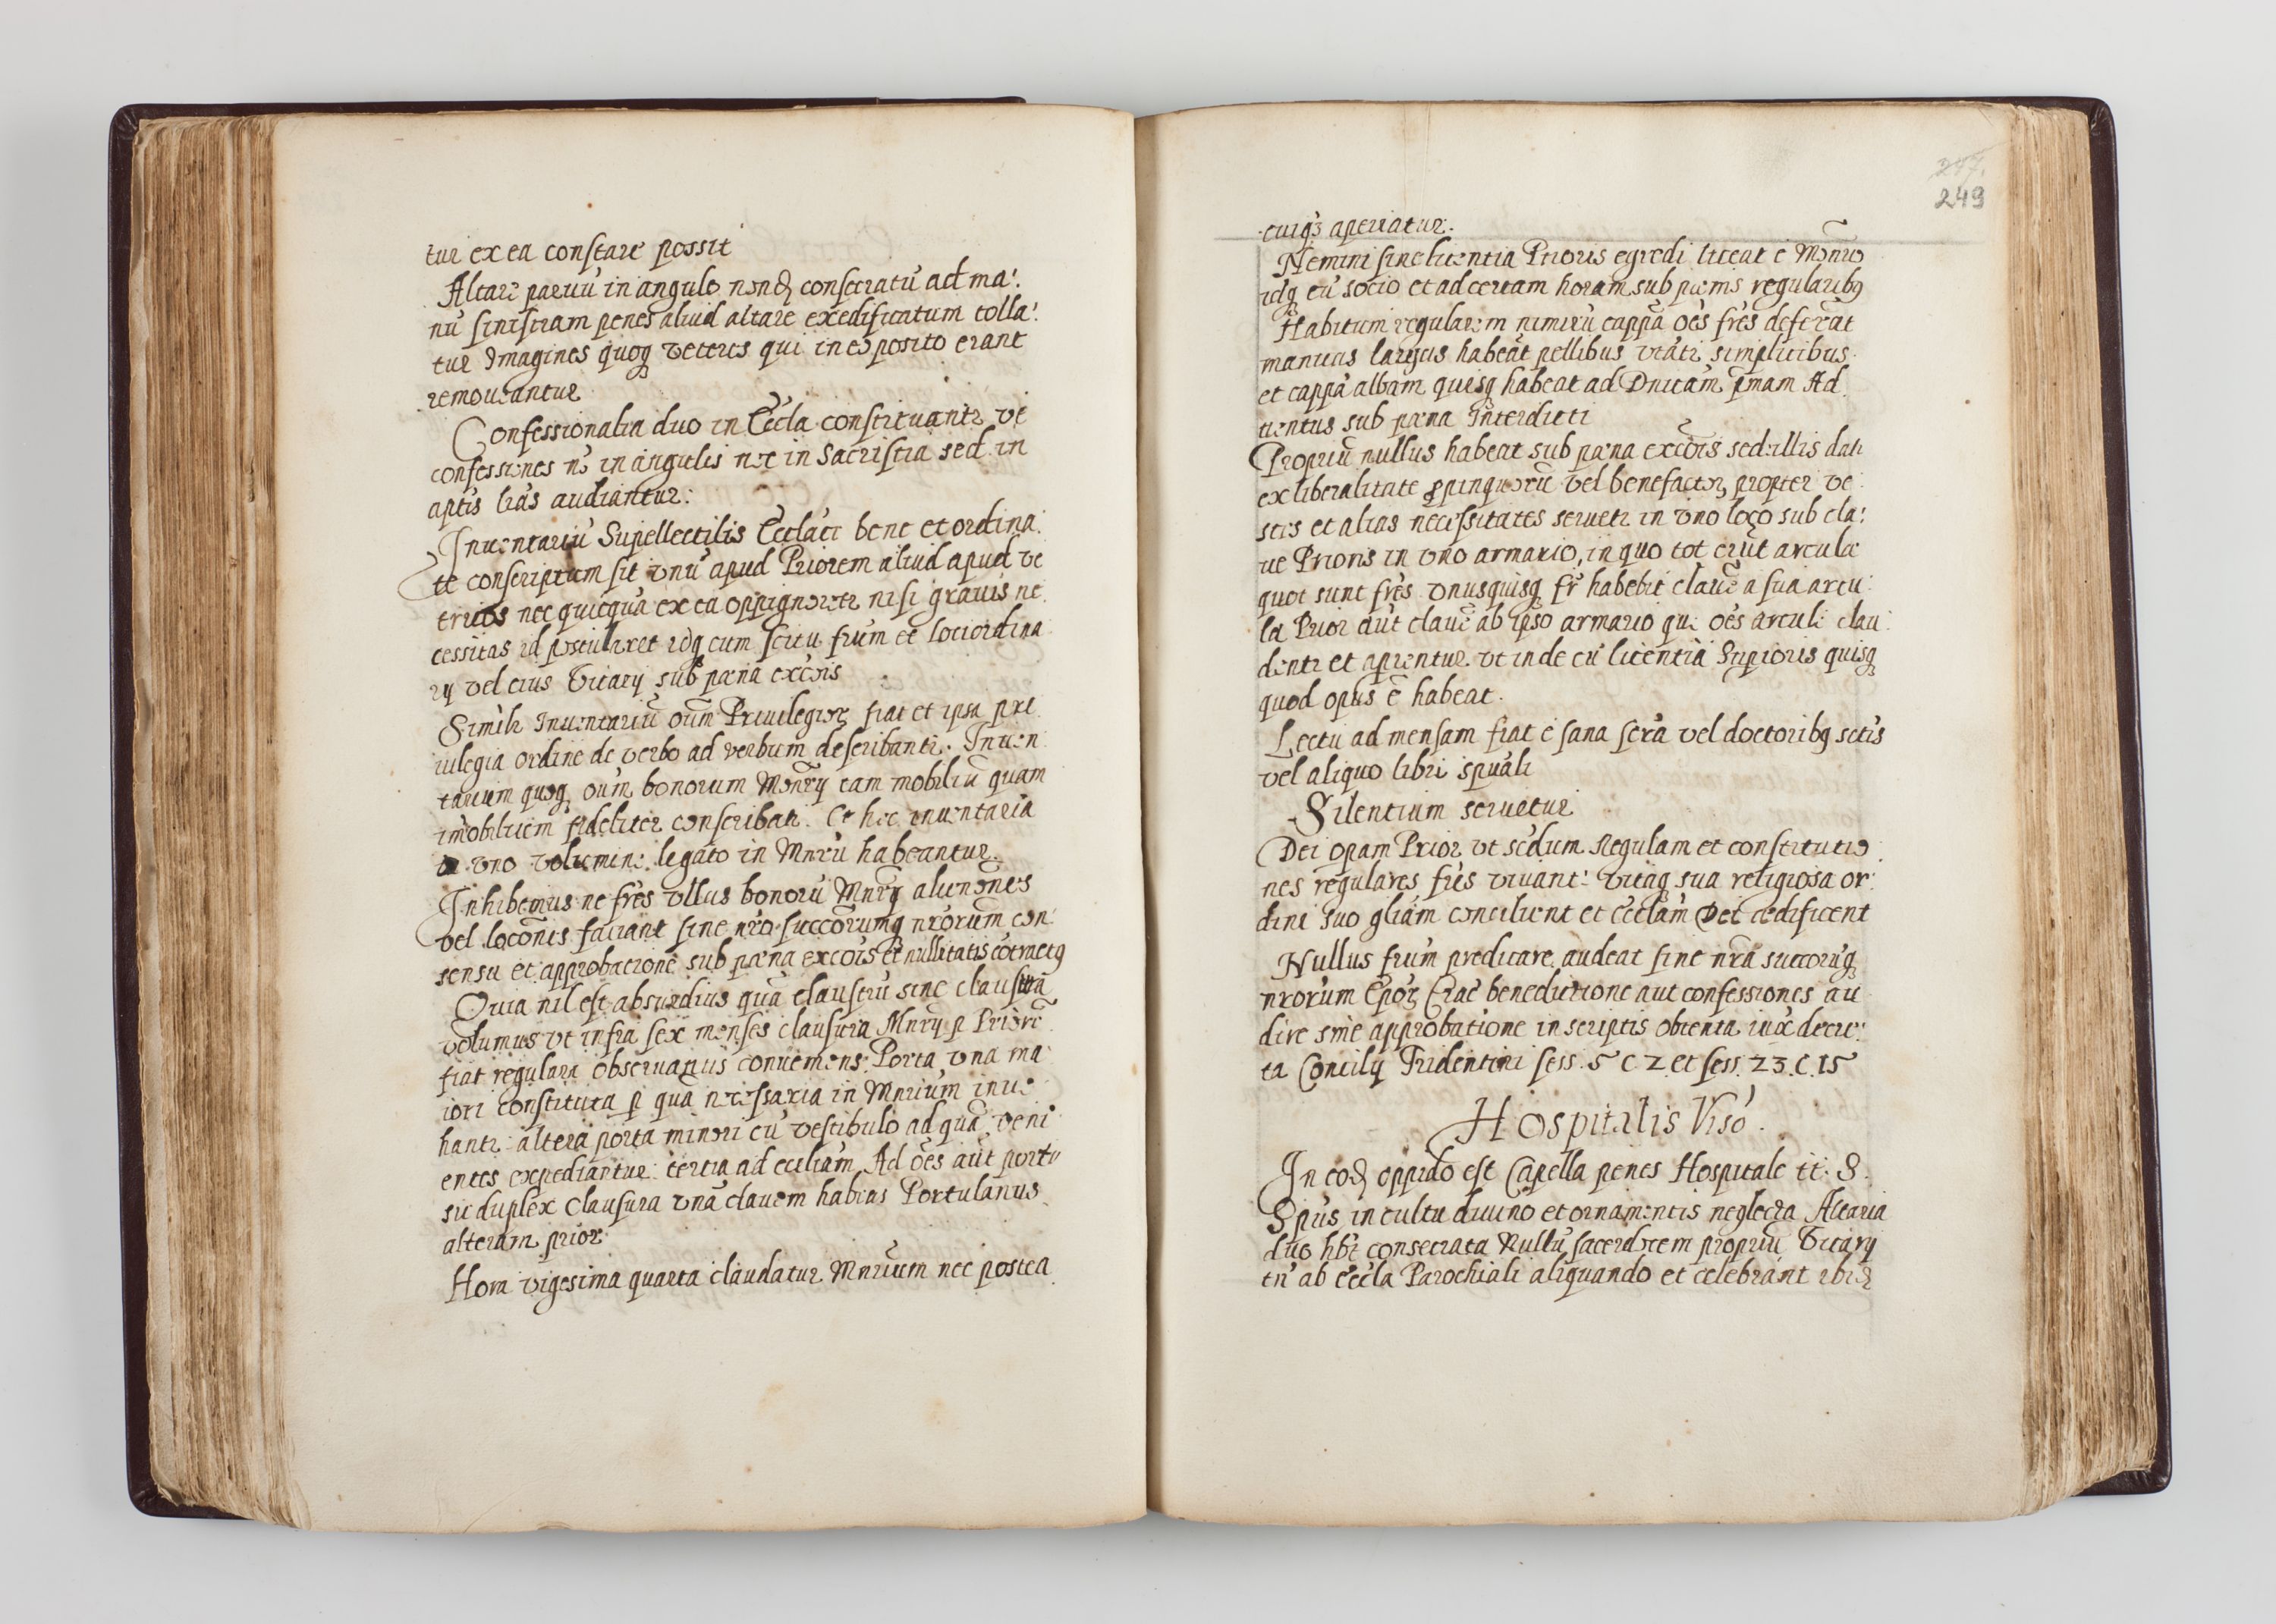 tur ex ea constare possit
Altare paruū in angulo nond consecratū ad ma:
nū sinistram penes aliud altare exedificatum tolla:
tur Imagines quoq veteres qui in eo posito erant
remoueantur
Confessionalia duo in Eccla constituantr vt
confessiones nō in angulis nec in Sacristia sed in
aptis locis audiantur:
Inuentariū Supellectilis Ecclae bene et ordina:
te conscriptum sit vnū apud Priorem aliud apud ve
trios nec quicquā ex ea oppignoretr nisi grauis ne
cessitas id postularet idq cum scitu frum et loci ordina
rij vel eius Vicarij sub pæna excōis
Similr Inuentariū oūm Priuilegiorꝝ fiat et ipsa pri
uilegia ordine de verbo ad verbum describantr. Inuen
tarium quoq oūm bonorum Mōnrij tam mobiliū quam
imobilium fideliter conscribatr. Et hec inuentaria
in vno volumine legato in Mnriū habeantur.
Inhibemus ne frēs vllus bonorū Mnrij alienōnes
vel locōnis faciant sine nrō succōrumq nrōrum con:
sensu et approbatione sub pæna excōis et nullitatis cōtractꝰ
Quia nil est absurdius quā claustrū sine clausura
volumus vt infra sex menses clausura Mnrij p Priorē
fiat regulari obseruantiis conueniens: Porta vna ma
iori constituta p quā necessaria in Mnrium inue
hantr: altera porta minori cū vestibulo ad quā veni
entes expediantur: tertia ad eccliam Ad oēs aūt porta
sit duplex Clausura vnā clauem habeas Portulanus
alteram prior
Hora vigesima quarta claudatur Mnrium nec postea
247.
249
cuiqȝ aperiatur.
Nemini sine licentia Prioris egredi liceat è Mōnrio
idq cū socio et ad certam horam sub pænis regularibꝰ
Habitum regularem nimirū cappā oēs frēs deferāt
manicas largas habeāt pellibus vtātr simplicibus
et cappā albam quisq habeat ad Dnicam pmam Ad
uentus sub pæna Interdicti
Propriū nullus habeat sub pæna excōis sed illis dati
ex liberalitate ppinquorū vel benefactorꝝ propter ve
stes et alias necessitates seruetr in vno loco sub cla:
ue Prioris in vno armario, in quo tot erūt arculæ
quot sunt frēs vnusquisq fr habebit clauē a sua arcu:
la Prior aūt clauē ab ipso armario quē oēs arculi clau:
dentr et aprientur. vt inde cū licentia Supioris quisq
quod opus ē habeat.
Lectu ad mensam fiat è sana scra vel doctoribꝰ sctis
vel aliquo libri spuali
Silentium seruetur
Det opam Prior vt scdum Regulam et constitutio
nes regulares frēs viuant: vitaq sua religiosa or:
dini suo gliam concilient et Ecclam Dei ædificent
Nullus frum predicare audeat sine nrā succorūq
nrorum Epōrꝝ Crac benedictione aut confessiones au
dire sine approbatione in scriptis obtenta iux decre:
ta Concilij Tridentini sess. 5 C 2. et sess. 23. C. 15
Hospitalis Viso.
In eod oppido est Capella penes Hospitale tt. S.
Spūs in cultu diuino et ornamentis neglecta Altaria
duo hbt consecrata Nullū sacerdotem propriū Vicarij
tn ab Eccla Parochiali aliquando et celebrant ibid